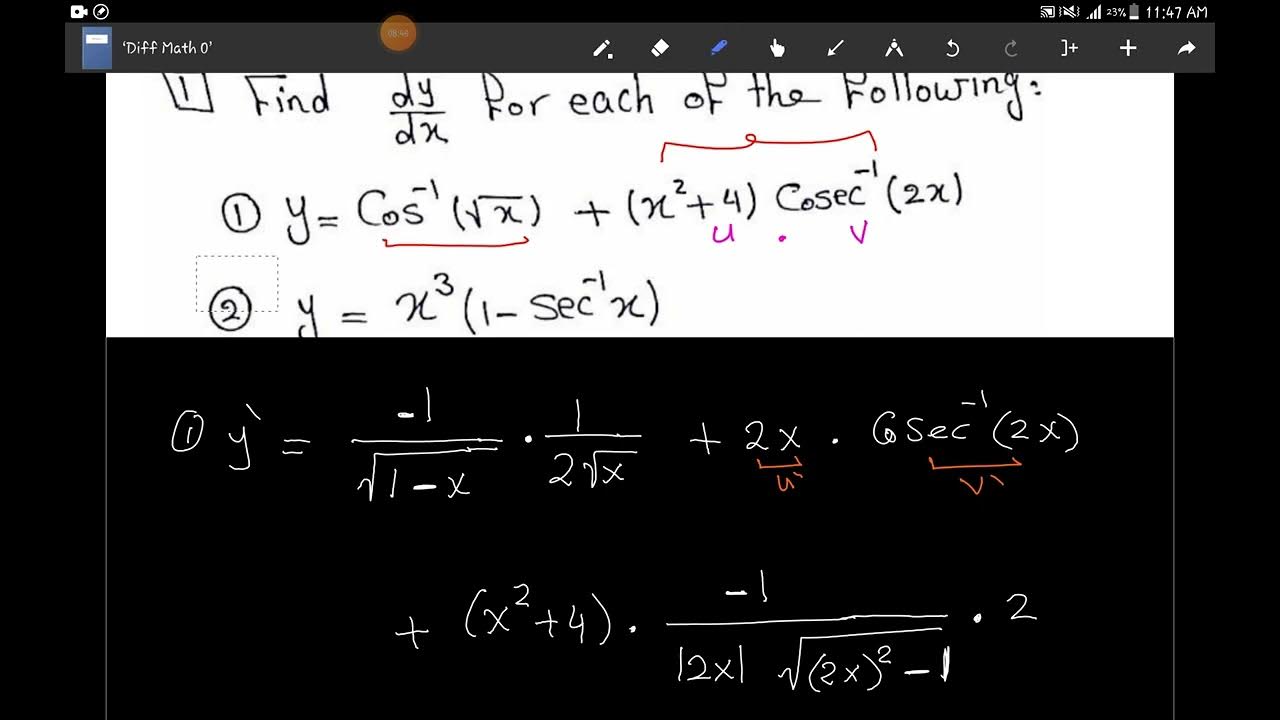 23% 11:47 AM
'Diff Math 0'
08:48
1 Find dy/dx for each of the following:
① y = Cos⁻¹(√x) + (x²+4) Cosec⁻¹(2x)
u . v
② y = x³(1 - Sec⁻¹x)
① y` = -1/√(1-x) · 1/(2√x) + 2x · Cosec⁻¹(2x)
u` v`
+ (x²+4) · -1/(|2x| √((2x)²-1)) · 2